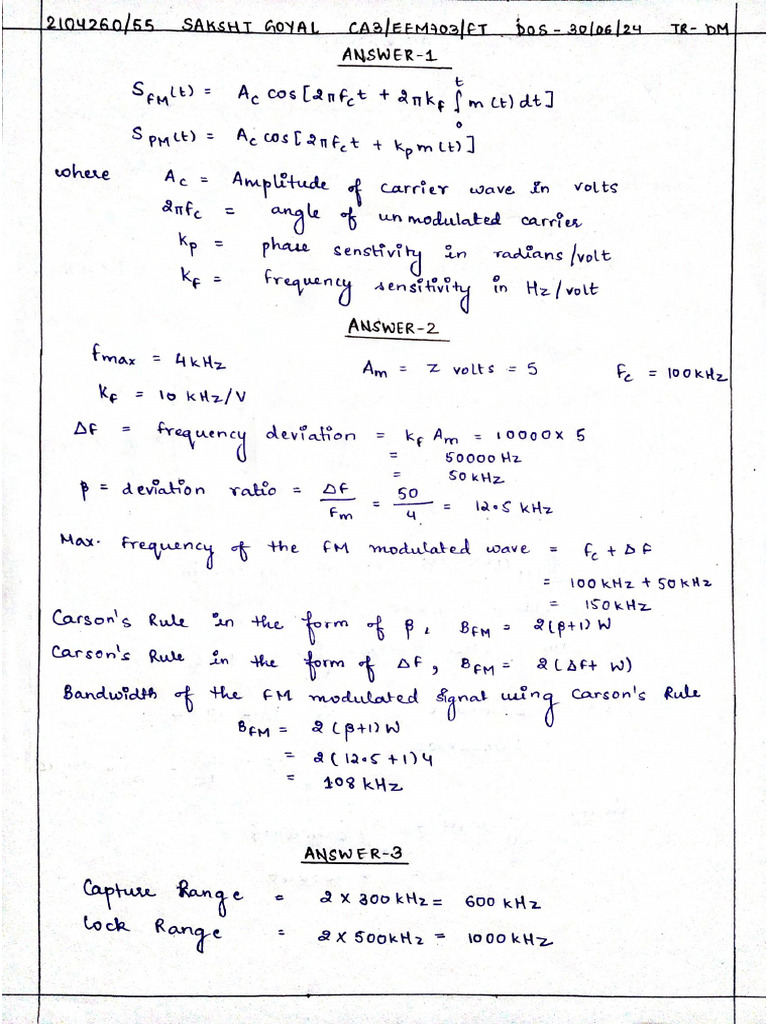 2104260/55 SAKSHI GOYAL CA3/EEM703/FT DOS - 30/06/24 TR- DM
ANSWER-1
S_FM(t) = A_c cos[2πf_c t + 2πk_f ∫_0^t m(t) dt]
S_PM(t) = A_c cos[2πf_c t + k_p m(t)]
where A_c = Amplitude of carrier wave in volts
2πf_c = angle of unmodulated carrier
k_p = phase senstivity in radians/volt
k_f = frequency sensitivity in Hz/volt
ANSWER-2
fmax = 4kHz A_m = Z volts = 5 f_c = 100kHz
K_f = 10 kHz/V
Δf = frequency deviation = k_f A_m = 10000 x 5
= 50000 Hz
= 50 kHz
β = deviation ratio = Δf/f_m = 50/4 = 12.5 kHz
Max. frequency of the FM modulated wave = f_c + Δf
= 100 kHz + 50 kHz
= 150 kHz
Carson's Rule in the form of β, B_FM = 2(β+1)W
Carson's Rule in the form of Δf, B_FM = 2(Δf+ W)
Bandwidth of the FM modulated signal using Carson's Rule
B_FM = 2(β+1)W
= 2(12.5+1)4
= 108 kHz
ANSWER-3
Capture Range = 2 x 300 kHz = 600 kHz
Lock Range = 2 x 500kHz = 1000 kHz